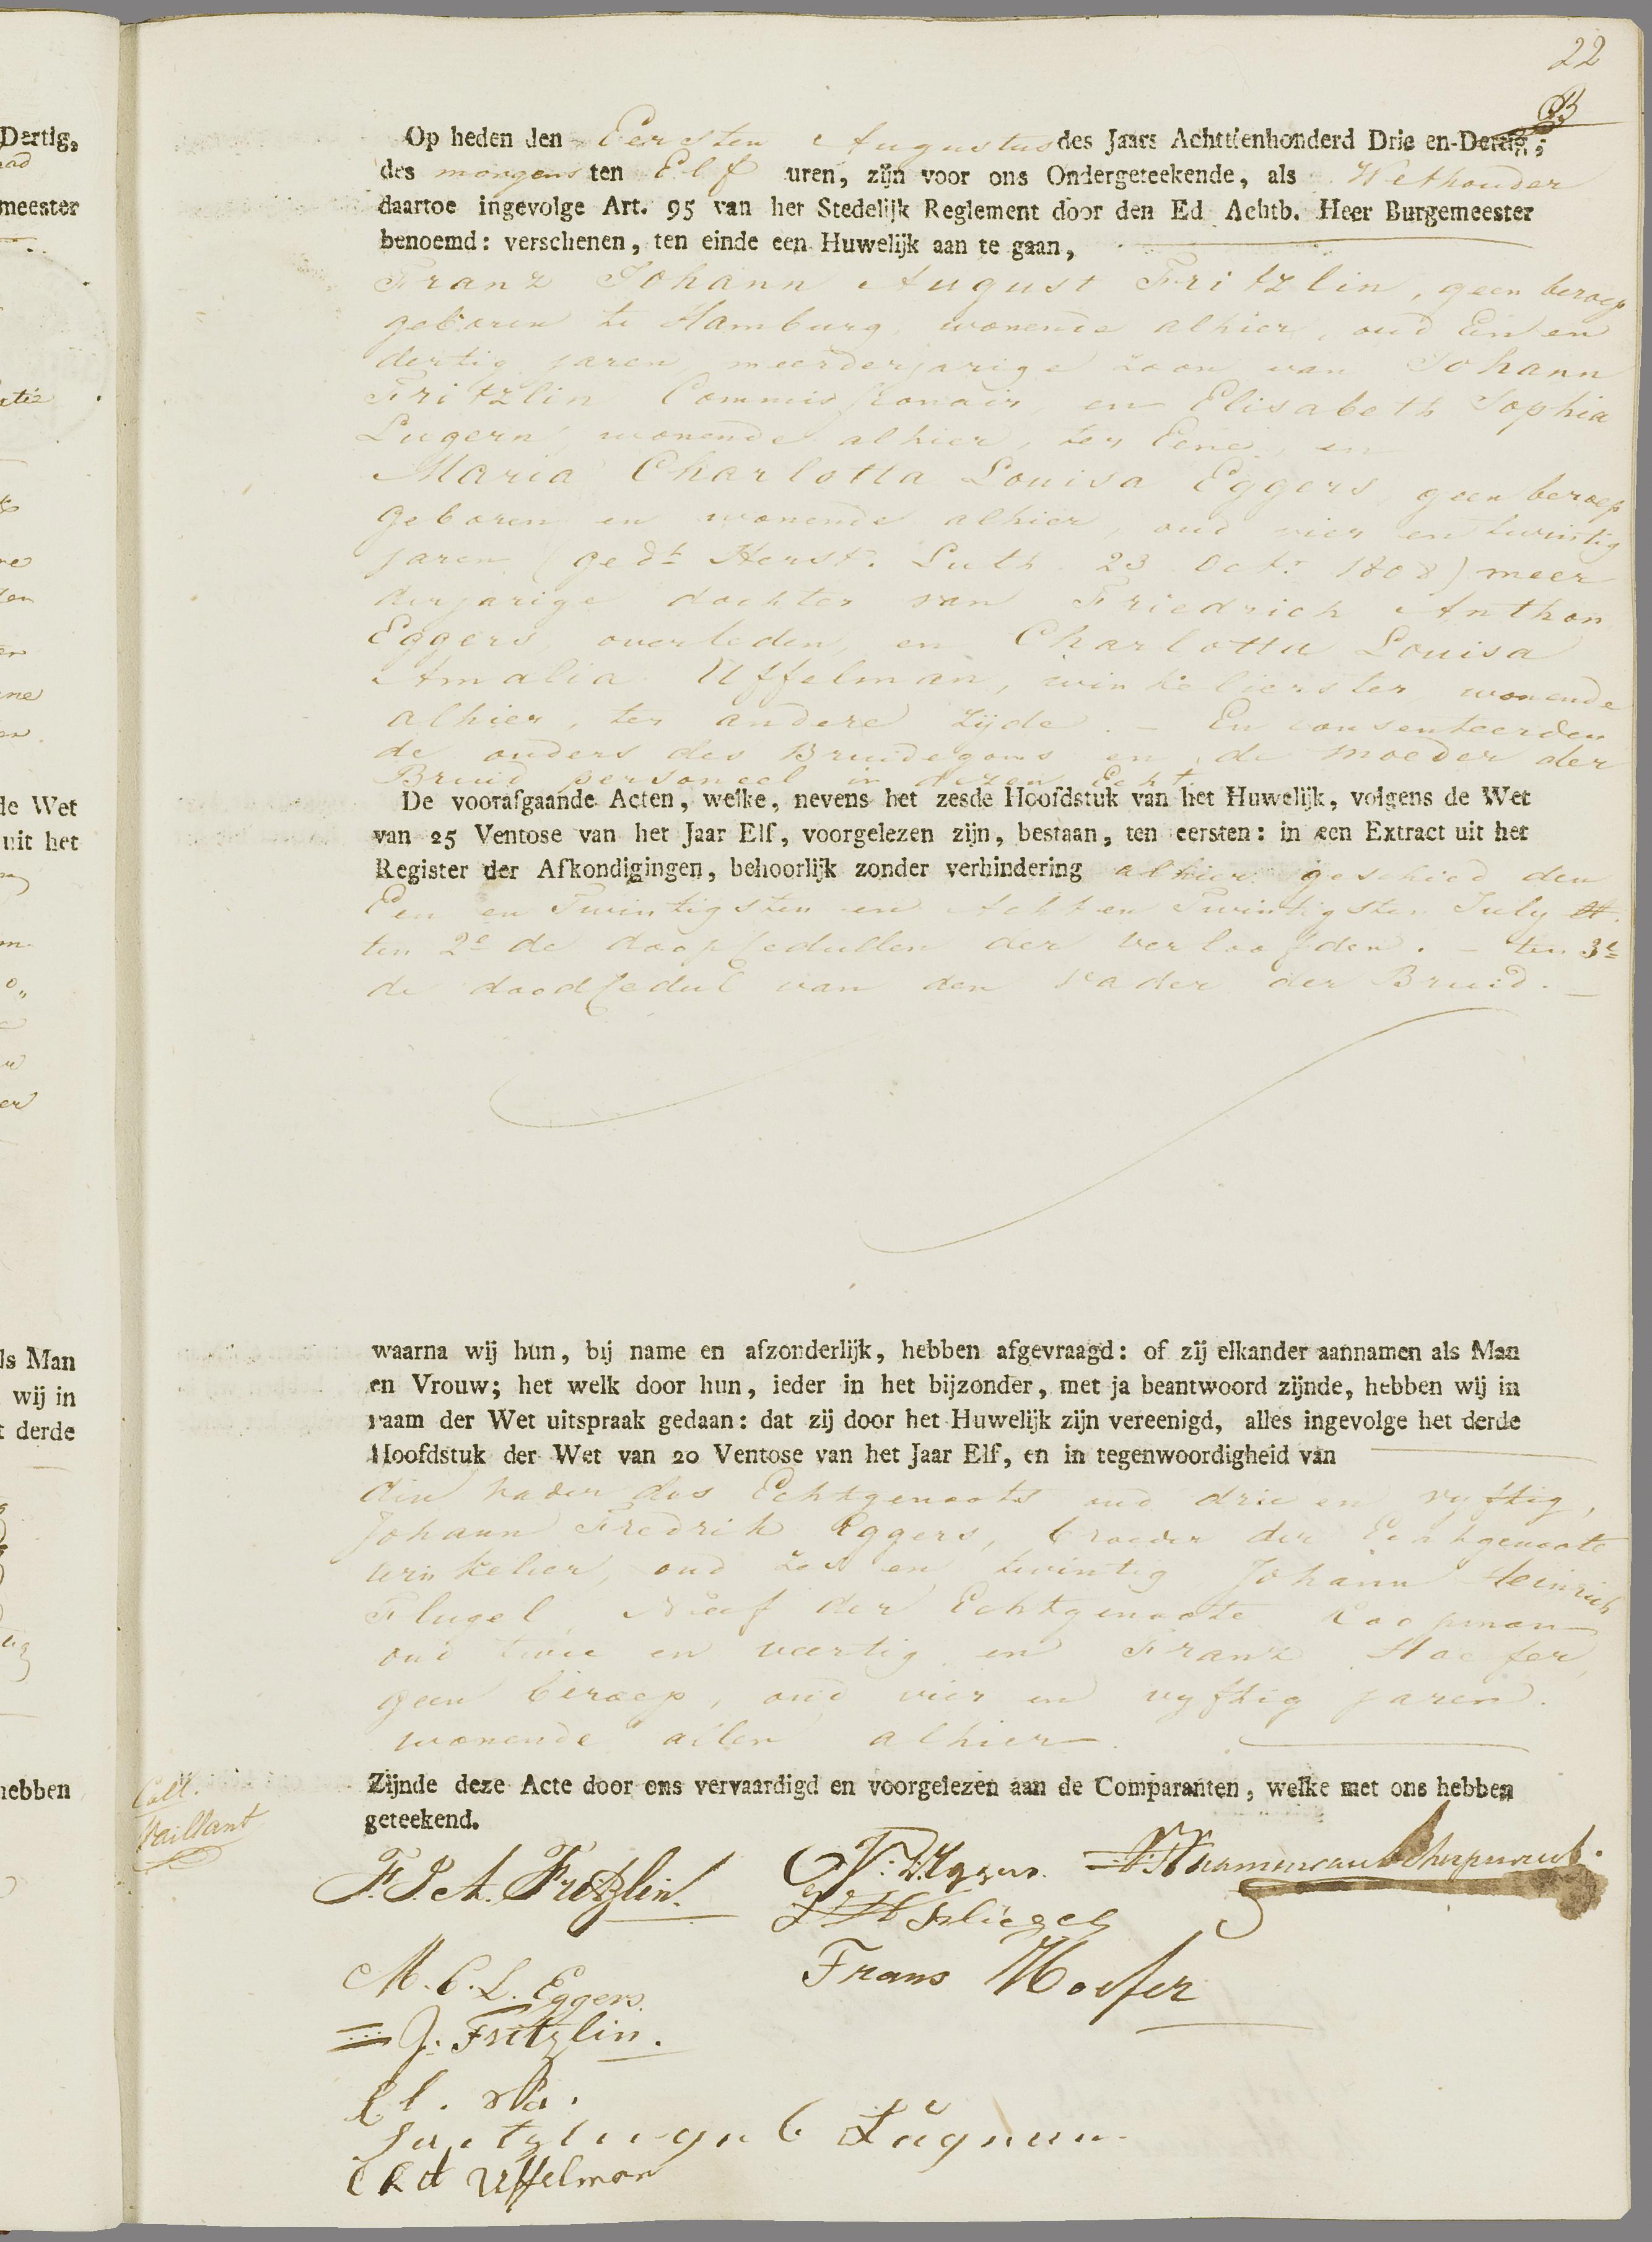 22
Op heden den Eersten Augustus des Jaars Achttienhonderd Drie en-Dertig,
des morgens ten Elf uren, zijn voor ons Ondergeteekende, als Wethouder
daartoe ingevolge Art. 95 van het Stedelijk Reglement door den Ed Achtb. Heer Burgemeester
benoemd: verschenen, ten einde een Huwelijk aan te gaan,
Franz Johann August Fritzlin, geen beroep
geboren te Hamburg wonende alhier, oud Een en
dertig jaren meerderjarige zoon van Johann
Fritzlin Commissionair, en Elisabeth Sophia
Lugern wonende alhier, ter Eene, en
Maria Charlotta Louisa Eggers geen beroep
geboren en wonende alhier, oud vier en twintig
jaren (gedt Herst. Luth 23 Octr 1808) meer
derjarige dochter van Friedrich Anthon
Eggers, overleden, en Charlotta Louisa
Amalia Uffelman, winkelierster wonende
alhier, ter andere zijde. – En consenteerden
de ouders des Bruidegoms en de moeder der
Bruid personeel in dezen Echt.
De voorafgaande Acten, welke, nevens het zesde Hoofdstuk van het Huwelijk, volgens de Wet
van 25 Ventose van het Jaar Elf, voorgelezen zijn, bestaan, ten eersten: in een Extract uit het
Register der Afkondigingen, behoorlijk zonder verhindering alhier geschied den
Een en Twintigsten en Acht en Twintigsten July ll.
ten 2e de doopcedullen der verloofden. – ten 3e
de doodcedul van den Vader der Bruid. –
waarna wij hun, bij name en afzonderlijk, hebben afgevraagd: of zij elkander aannamen als Man
en Vrouw; het welk door hun, ieder in het bijzonder, met ja beantwoord zijnde, hebben wij in
naam der Wet uitspraak gedaan: dat zij door het Huwelijk zijn vereenigd, alles ingevolge het derde
Hoofdstuk der Wet van 20 Ventose van het Jaar Elf, en in tegenwoordigheid van
den vader des Echtgenoots oud drie en vyftig,
Johann Fredrik Eggers, broeder der Echtgenoote
winkelier, oud zes en twintig Johann Heinrich
Flugel, Neef der Echtgenoote Koopman
oud twee en veertig en Franz Hoefer,
geen beroep, oud vier en vyftig jaren.
wonende allen alhier.
Coll.
Vaillant
Zijnde deze Acte door ons vervaardigd en voorgelezen aan de Comparanten, welke met ons hebben
geteekend.
F. J. A. Fritzlin.
M. C. L. Eggers.
J. Fritzlin.
Frans Hoefer
C L A Uffelman